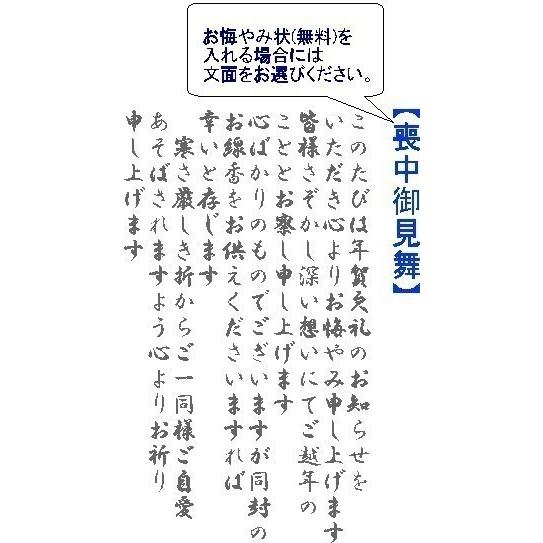 お悔やみ状(無料)を
入れる場合には
文面をお選びください。
【喪中御見舞】
このたびは年賀欠礼のお知らせを
いただき心よりお悔やみ申し上げます
皆様さぞかし深い想いにてご越年の
こととお察し申し上げます
心ばかりのものでございますが同封の
お線香をお供えくださいますれば
幸いと存じます
寒さ厳しき折からご一同様ご自愛
あそばされますよう心よりお祈り
申し上げます